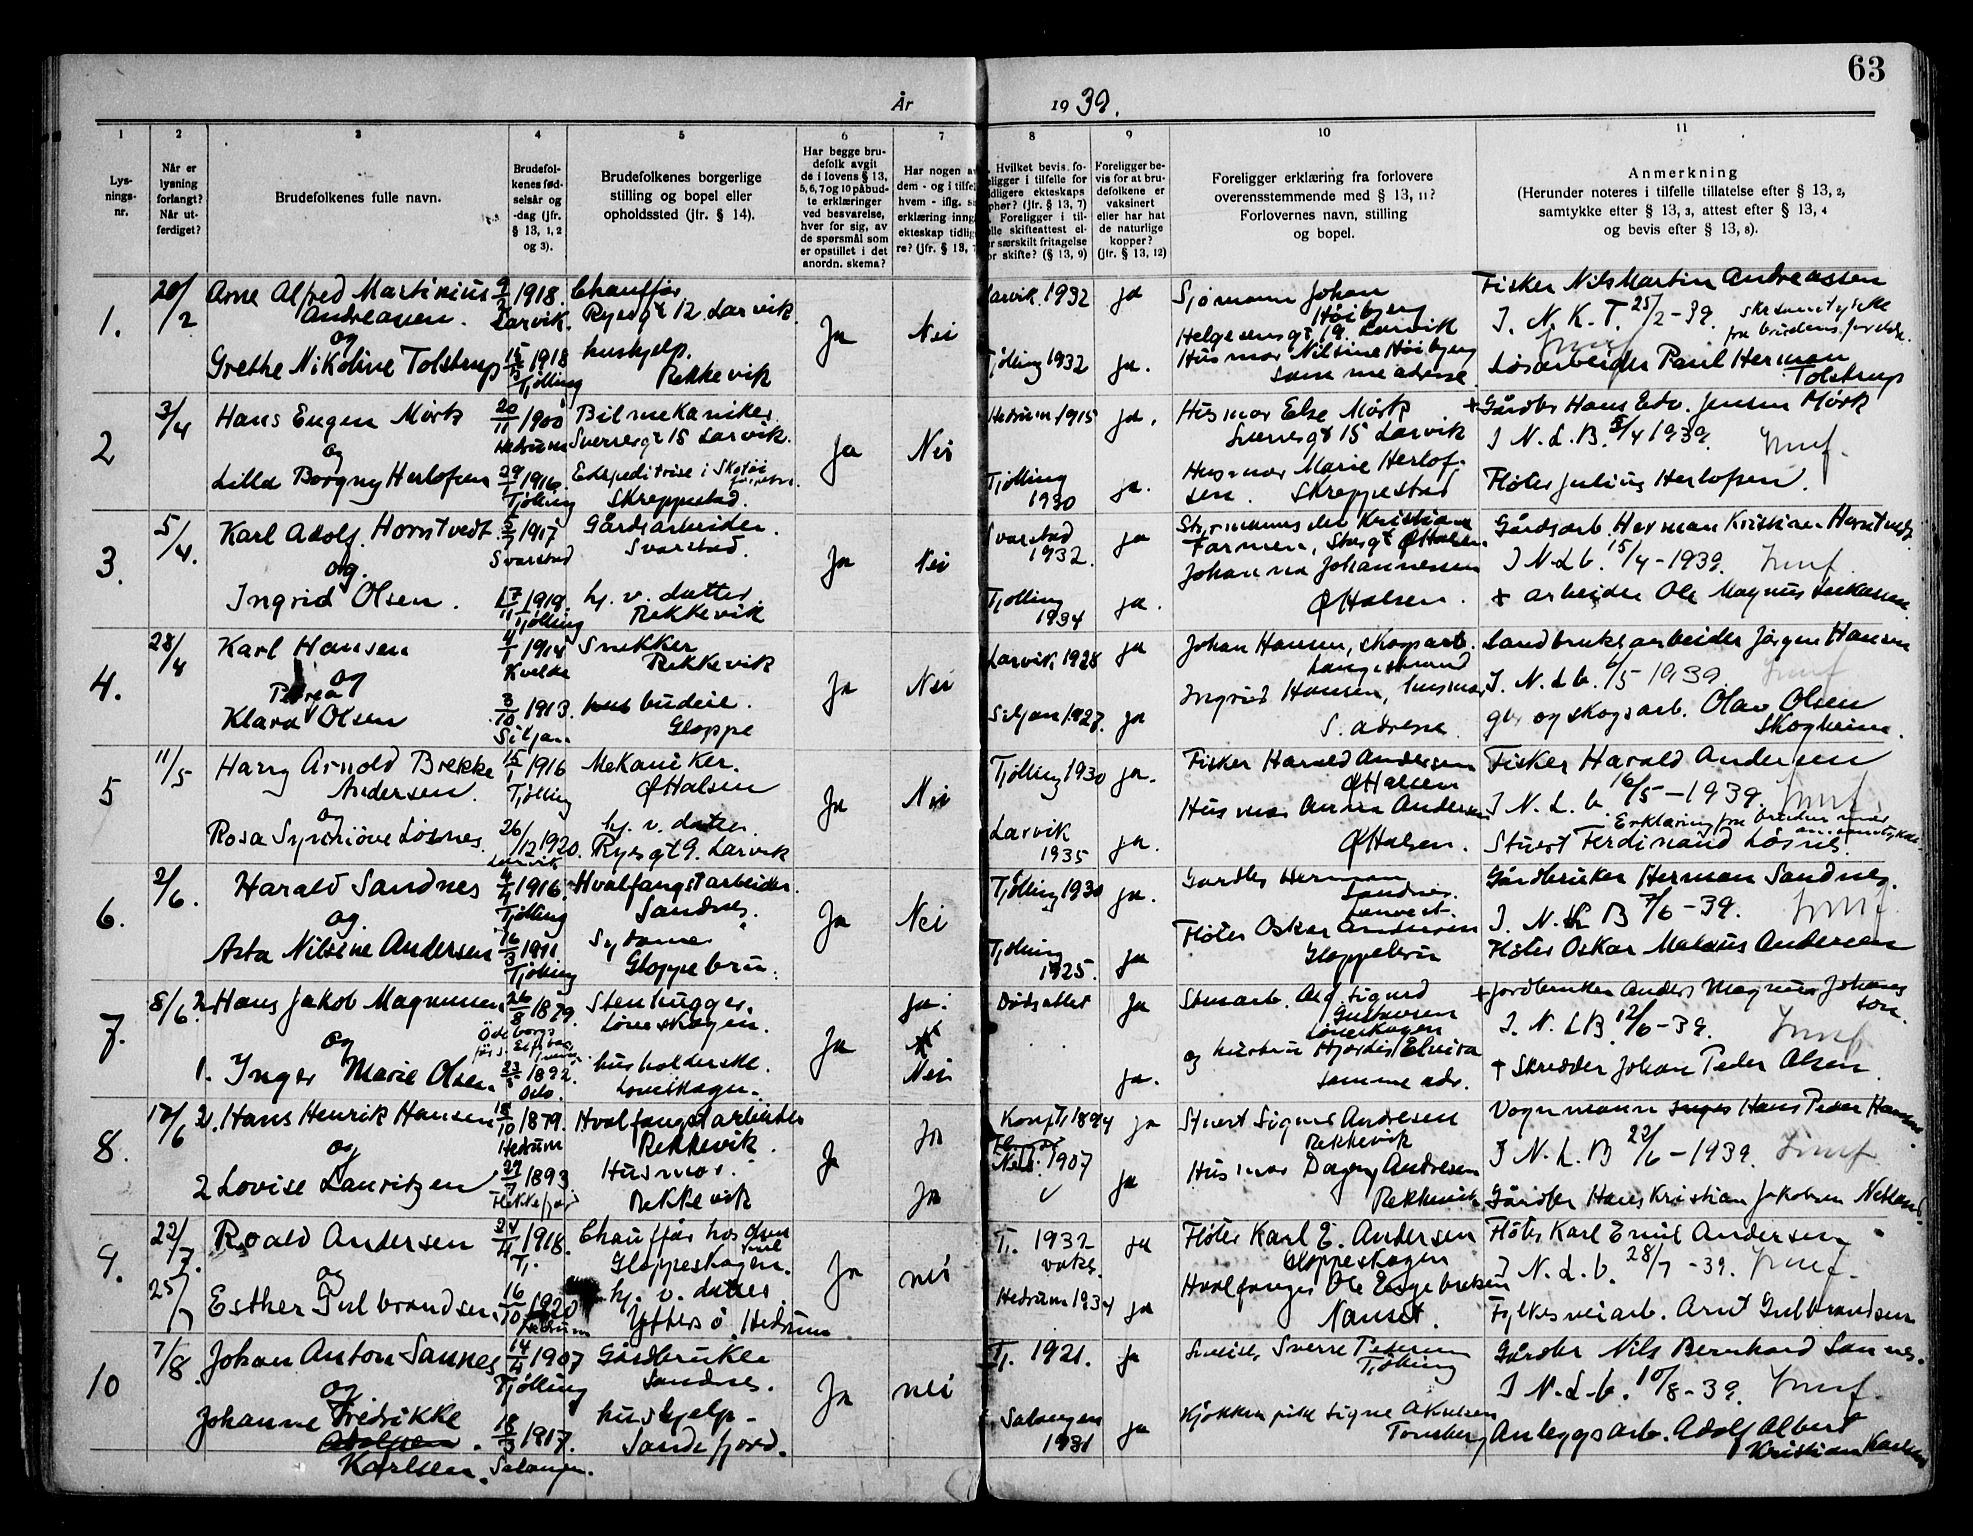 63
År 1939.
1 2 3 4 5 6 7 8 9 10 11
Lys-
nings-
nr.
Når er
lysning
forlangt?
Når ut-
ferdiget?
Brudefolkenes fulle navn.
Brudefol-
kenes fød-
selsår og
-dag (jfr.
§ 13, 1, 2
og 3).
Brudefolkenes borgerlige
stilling og bopel eller
opholdssted (jfr. § 14).
Har begge bru-
defolk avgit
de i lovens § 13,
5, 6, 7 og 10 påbud-
te erklæringer
ved besvarelse,
hver for sig, av
de spørsmål som
er opstillet i det
anordn. skema?
Har nogen av
dem - og i tilfel
hvem - iflg. s
erklæring inng
ekteskap tidlig
re? (jfr. § 13, 7
Hvilket bevis. fo-
eligger i tilfelle for
idligere ekteskaps
phør? (jfr. § 13, 7)
Foreligger i til-
lle skifteattest el-
r særskilt fritagelse
or skifte? (§ 13, 9)
Foreligger be-
vis for at bru-
defolkene er
vaksinert
eller har hat
de naturlige
kopper?
(jfr. § 13, 12)
Foreligger erklæring fra forlovere
overensstemmende med § 13, 11?
Forlovernes navn, stilling
og bopel.
Anmerkning
(Herunder noteres i tilfelle tillatelse efter § 13, 2,
samtykke efter § 13, 3, attest efter § 13, 4
og bevis efter § 13, 8).
1. 20/2 Arne Alfred Martinius 9/2 1918. Chauffør Larvik 1932 ja Sjømann Johan Fisker Nils Martin Andreassen
Andreassen. Larvik. Ryesgt 12. Larvik. Ja Nei Høibjerg I. N. K. T. 25/2-39.
og Helgesensgt 19. Larvik
Grethe Nikoline Tolstrup 15/3 1918 hushjelp. Tjølling 1932 ja. Husmor Nilsine Høibjerg Løsarbeider Paul Herman
Tjølling Rekkevik samme adresse. Tolstrup
2 3/4 Hans Eugen Mørk 20/11 1900 Bilmekaniker Hedrum 1915 ja. Husmor Else Mørk + Gårdbr Hans Edv. Jensen Mørk
Hedrum Sverresgt 15 Larvik. Ja Nei Sverresgt 15 Larvik I N. L. B. 5/4 1939.
og
Lilla Borgny Herlofsen 29/1 1916. Ekspeditrise i Tjølling 1930 ja. Husmor Marie Herlof-
Tjølling Skreppestad. sen. Skreppestad Fløter Julius Herlofsen.
3. 5/4. Karl Adolf Horntvedt 5/7 1917 Gårdsarbeider Svarstad 1932. ja Kristiane Gårdsarb. Herman Kristian Horntvedt.
Svarstad Svarstad. Ja Nei Farmen, ØHalsen I N L b. 15/4-1939.
og. Johanna Johannessen
Ingrid Olsen. 17/11 1919. hj. v. datter. Tjølling 1934 ja. ØHalsen. + arbeider Ole Magnus
Tjølling Rekkevik
4. 28/4 Karl Hansen 4/1 1914 Snekker Larvik 1928 ja Johan Hansen, skogsarb. Landbruksarbeider Jørgen Hansen
Kvelde Rekkevik Ja Nei Langestrand I. N. L b. 6/5-1939.
og Ingrid Hansen, husmor
Klara Olsen 3/10 1913. budeie. Siljan 1927. ja S. adresse. gbr og skogsarb. Olav Olsen
Siljan Gloppe Skogheim.
5 11/5 Harry Arnold Brekke 15/1 1916 Mekaniker. Tjølling 1930 ja. Fisker Harald Andersen Fisker Harald Andersen
Andersen. Tjølling ØHalsen Ja Nei ØHalsen I N. L. b. 16/5-1939.
og Husmor Anna Andersen
Rosa Synnøve Løsnes. 26/12 1920. hj. v. datter. Larvik 1935 ja. ØHalsen. Stuert Ferdinand Løsnes.
Larvik Ryesgt 9. Larvik
6. 2/6. Harald Sandnes 4/4 1916 Hvalfangstarbeider. Tjølling 1930 ja. Gardbr Herman Sandnes Gårdbruker Herman Sandnes.
Tjølling Sandnes. Ja Nei I. N. L B 7/6-39.
og. Fløter Oskar Andersen
Asta Nilsine Andersen 16/3 1911 Sydame Tjølling 1925. ja Gloppebru Fløter Oskar Andersen
Tjølling Gloppebru.
7. 8/6 2. Hans Jakob Magnussen 26/8 1879. Stenhugger. Dødsattest ja Sigurd + Jordbruker Anders Magnus Johans
Løveskogen. Ja ja. Gustavsen son.
og Løveskogen I. N. L B. 12/6-39.
1. Inger Marie Olsen. 1892. husholderske. Nei ja. og hustru Hjørdis Elvira + Skredder Johan Peder Olsen
Oslo. Løveskogen. samme adr.
8. 17/6 2. Hans Henrik Hansen 18/10 1879. Hvalfangstarbeider Konf. 1894 ja Stuert Sigurd Andresen Vognmann Hans Peder Hansen
Hedrum Rekkevik. Ja Ja Rekkevik I N. L. B 22/6-1939.
og
2 Lovise Lauritzen 27/7 1893 Husmor. 1907 ja Husmor Dagny Andresen
Rekkevik Ja Rekkevik Gårdbr Hans Kristian Jakobsen
9. 22/7. Roald Andersen 24/4 1918. Chauffør hos Tj. 1932 ja Fløter Karl E. Andersen Fløter Karl Emil Andersen
Tj. Gloppeskogen. Ja nei Gloppeskogen I N. L. b. 28/7-39.
25/7 og Hvalfanger Ole
Esther Gulbrandsen. 16/10 1920 hj. v. datter. Hedrum 1934 ja Nanset. Fylkesveiarb. Arnt Gulbrandsen
Hedrum Yttersø. Hedrum.
10 7/8. Johan Anton Sannes 14/4 1907 Gårdbruker Tj. 1921. ja Sverre Pedersen Gårdbr Nils Bernhard Sannes.
Tjølling Sandnes. Ja nei Tjølling I N. L. b. 10/8-39.
og
Johanne Fredrikke 18/3 1917. hushjelp- Salangen 1931 ja Kjøkkenpike Signe Akselsen Anleggsarb. Adolf Albert
Karlsen. Salangen. Sandefjord. Tønsberg Kristian Karlsen